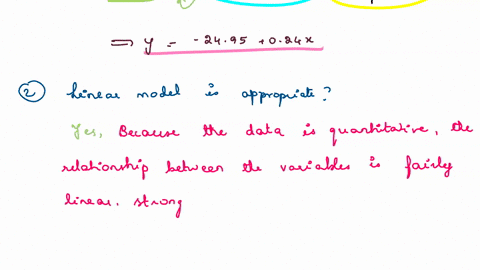 ⇒ y = -24.95 + 0.24x
② Linear model is appropriate?
Yes, Because the data is quantitative, the
relationship between the variables is fairly
linear. strong